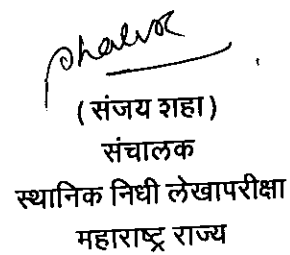 (संजय शहा)
संचालक
स्थानिक निधी लेखापरीक्षा
महाराष्ट्र राज्य